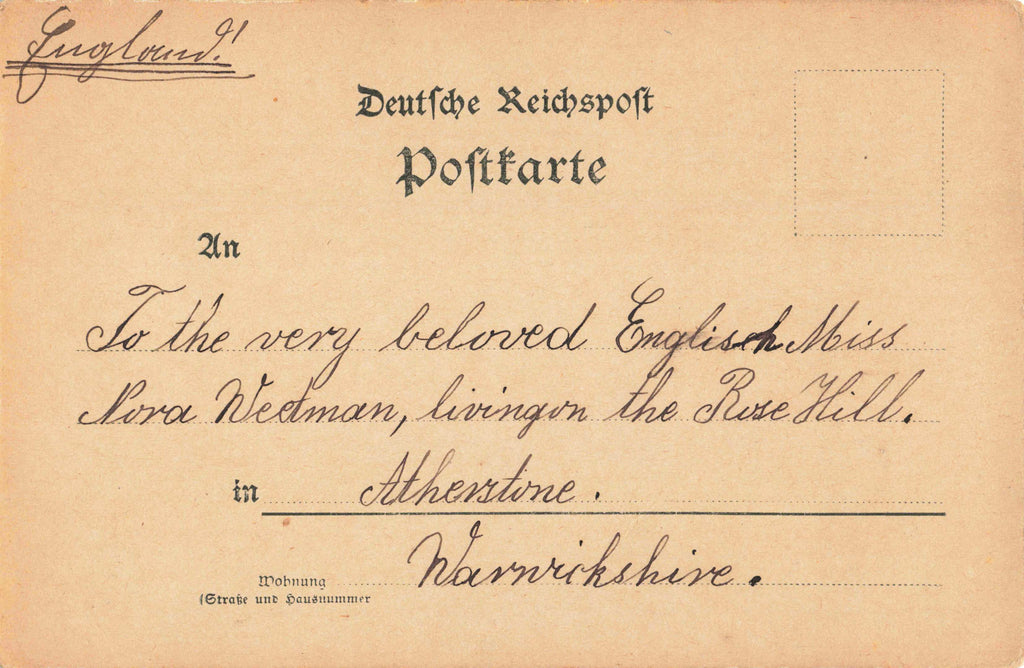 England!
Deutsche Reichspost
Postkarte
An
To the very beloved Englisch Miss
Nora Weetman, living on the Rose Hill.
in Atherstone.
Warwickshire.
Wohnung
(Straße und Hausnummer